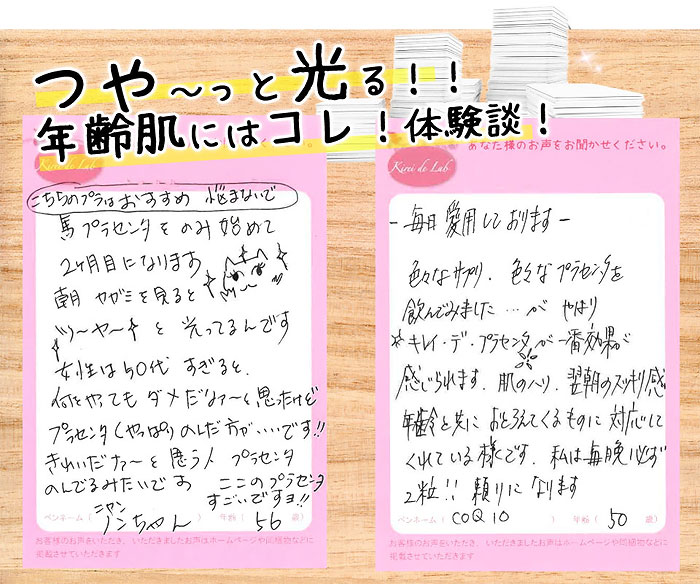 つや～っと光る！！
年齢肌にはコレ！体験談！
Kirei de Lab
こちらのプラはおすすめ 悩まないで
馬プラセンタをのみ始めて
2ヶ月目になります
朝 カガミを見ると
ツヤーと光ってるんです
女性は50代すぎると、
何をやってもダメだなァ～と思ったけど
プラセンタ(やっぱり)のんだ方が・・・・です!!
きれいだナァ～と思う人 プラセンタ
のんでるみたいです ここのプラセンタ
すごいですョ!!
ペンネーム（ ノンちゃん ニャン ） 年齢（ 56 歳）
お客様のお声をいただき、いただきましたお声はホームページや同梱物などに
掲載させていただきます
あなた様のお声をお聞かせください。
Kirei de Lab
－毎日愛用しております－
色々なサプリ、色々なプラセンタを
飲んでみました…が やはり
☆キレイ・デ・プラセンタが一番効果が
感じられます、肌のハリ、翌朝のスッキリ感
年齢と共におとろえてくるものに対応して
くれている様です、私は毎晩必ず
2粒!! 頼りになります
ペンネーム（ COQ10 ） 年齢（ 50 歳）
お客様のお声をいただき、いただきましたお声はホームページや同梱物などに
掲載させていただきます